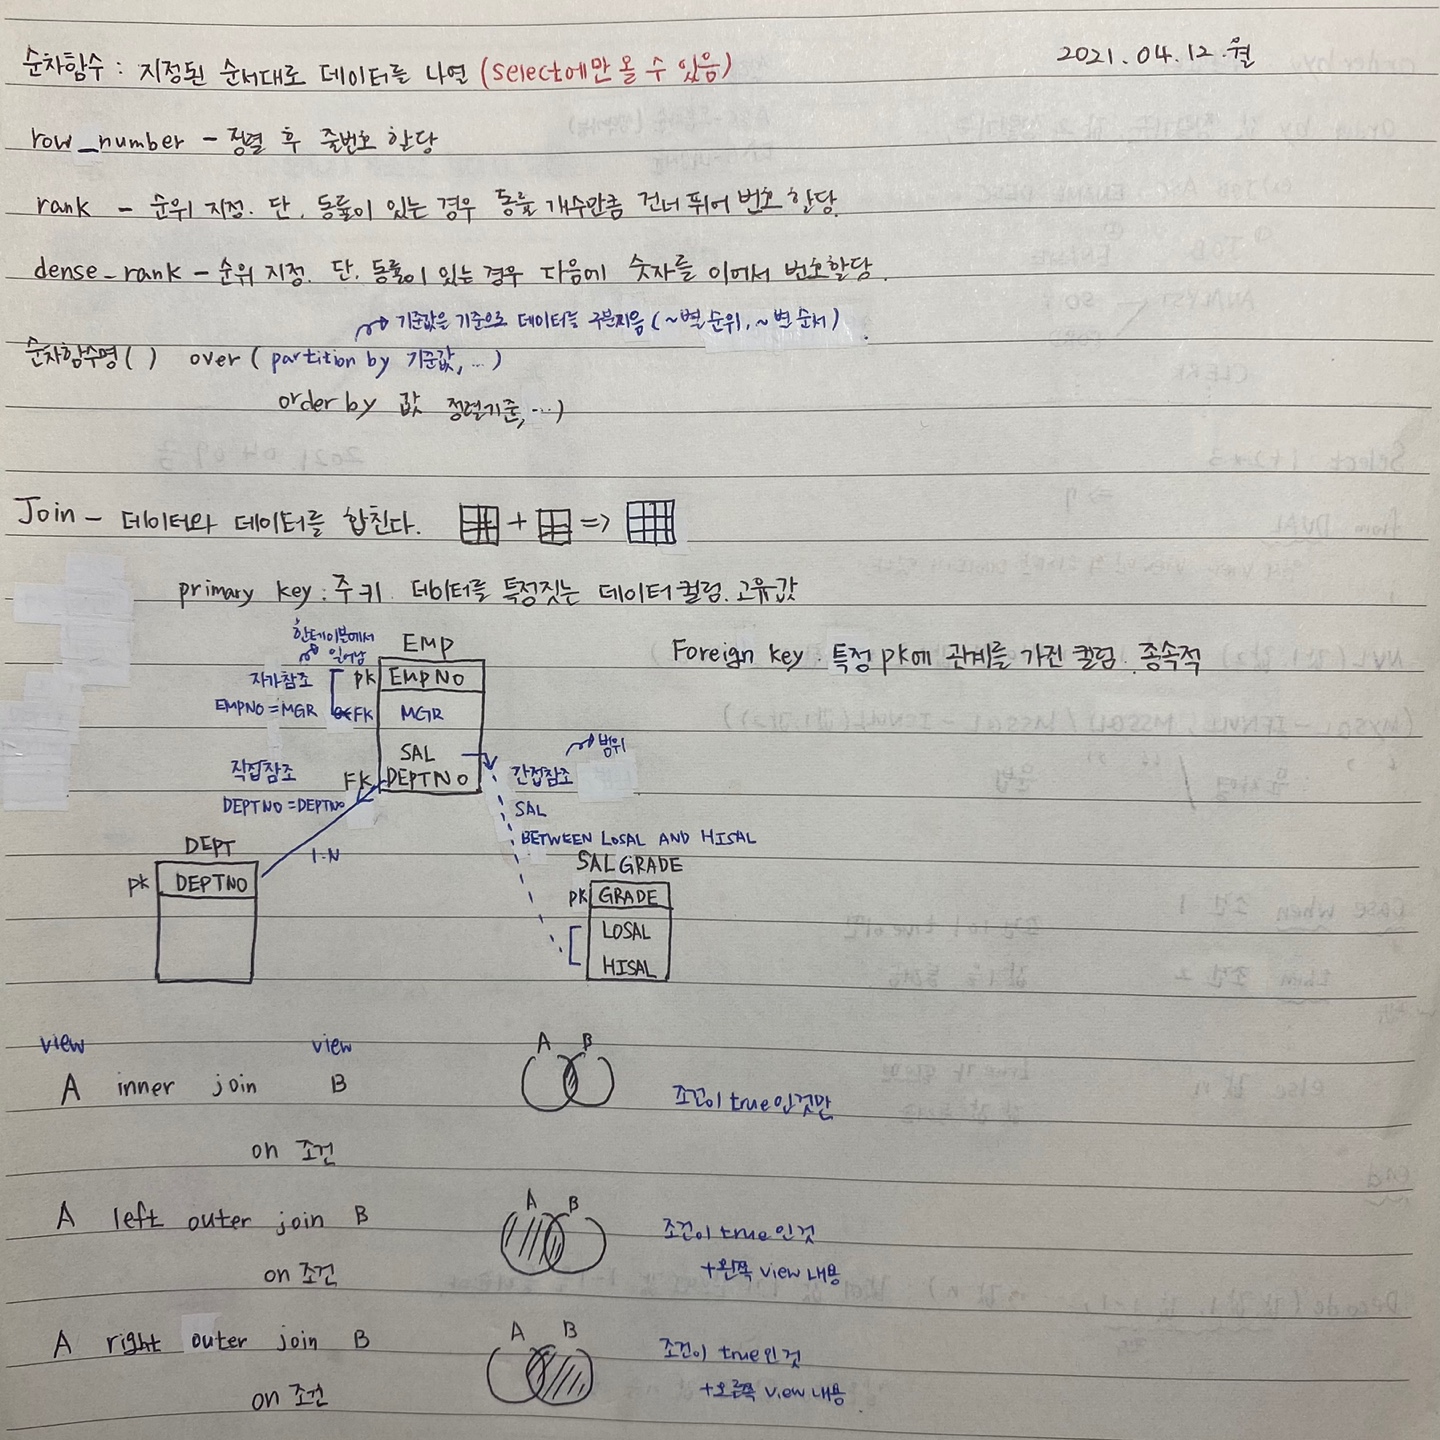 2021.04.12.월
순차함수 : 지정된 순서대로 데이터를 나열 (select에만 올 수 있음)
row_number - 정렬 후 줄번호 할당
rank - 순위 지정. 단, 동률이 있는 경우 동률 개수만큼 건너 뛰어 번호 할당.
dense_rank - 순위 지정. 단, 동률이 있는 경우 다음에 숫자를 이어서 번호할당.
기준값을 기준으로 데이터를 구분지음 (~별 순위, ~별 순서)
순차함수명 ( ) over ( partition by 기준값, ...)
order by 값 정렬기준, ...)
Join - 데이터와 데이터를 합친다. + =>
primary key : 주키. 데이터를 특정짓는 데이터 컬럼. 고유값
Foreign key. 특정 pk에 관계를 가진 컬럼. 종속적
한테이블에서
일어남
EMP
자가참조 pk EMPNO
EMPNO = MGR FK MGR
SAL
범위
직접참조 FK DEPTNO 간접참조
DEPTNO = DEPTNO SAL
BETWEEN LOSAL AND HISAL
DEPT 1-N SALGRADE
pk DEPTNO pk GRADE
LOSAL
HISAL
view view A B
A inner join B 조건이 true인것만
on 조건
A B
A left outer join B 조건이 true인것
on 조건 +왼쪽 view 내용
A B
A right outer join B 조건이 true인것
on 조건 +오른쪽 view 내용